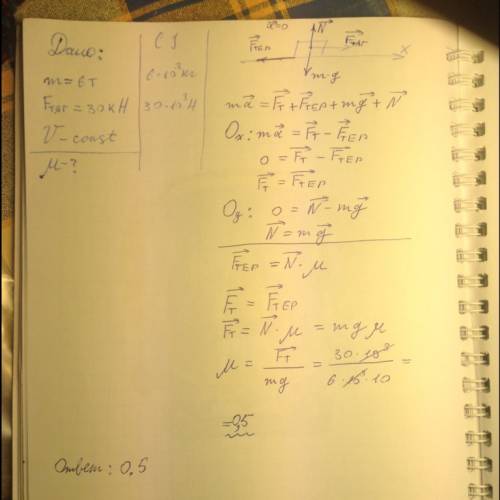 Дано:
m = 6т
Fтяг = 30кН
V - const
μ - ?
СИ
6·10³кг
30·10³Н
a⃗=0
N⃗
F⃗тер
F⃗тяг
x
m·g⃗
ma⃗ = F⃗т + F⃗тер + mg⃗ + N⃗
Ox: ma⃗ = F⃗т - F⃗тер
0 = F⃗т - F⃗тер
F⃗т = F⃗тер
Oy: 0 = N⃗ - mg⃗
N⃗ = mg⃗
F⃗тер = N⃗·μ
F⃗т = F⃗тер
F⃗т = N⃗·μ = mgμ
μ = F⃗т/mg = 30·10³/6·10³·10 =
=0,5
Ответ: 0,5